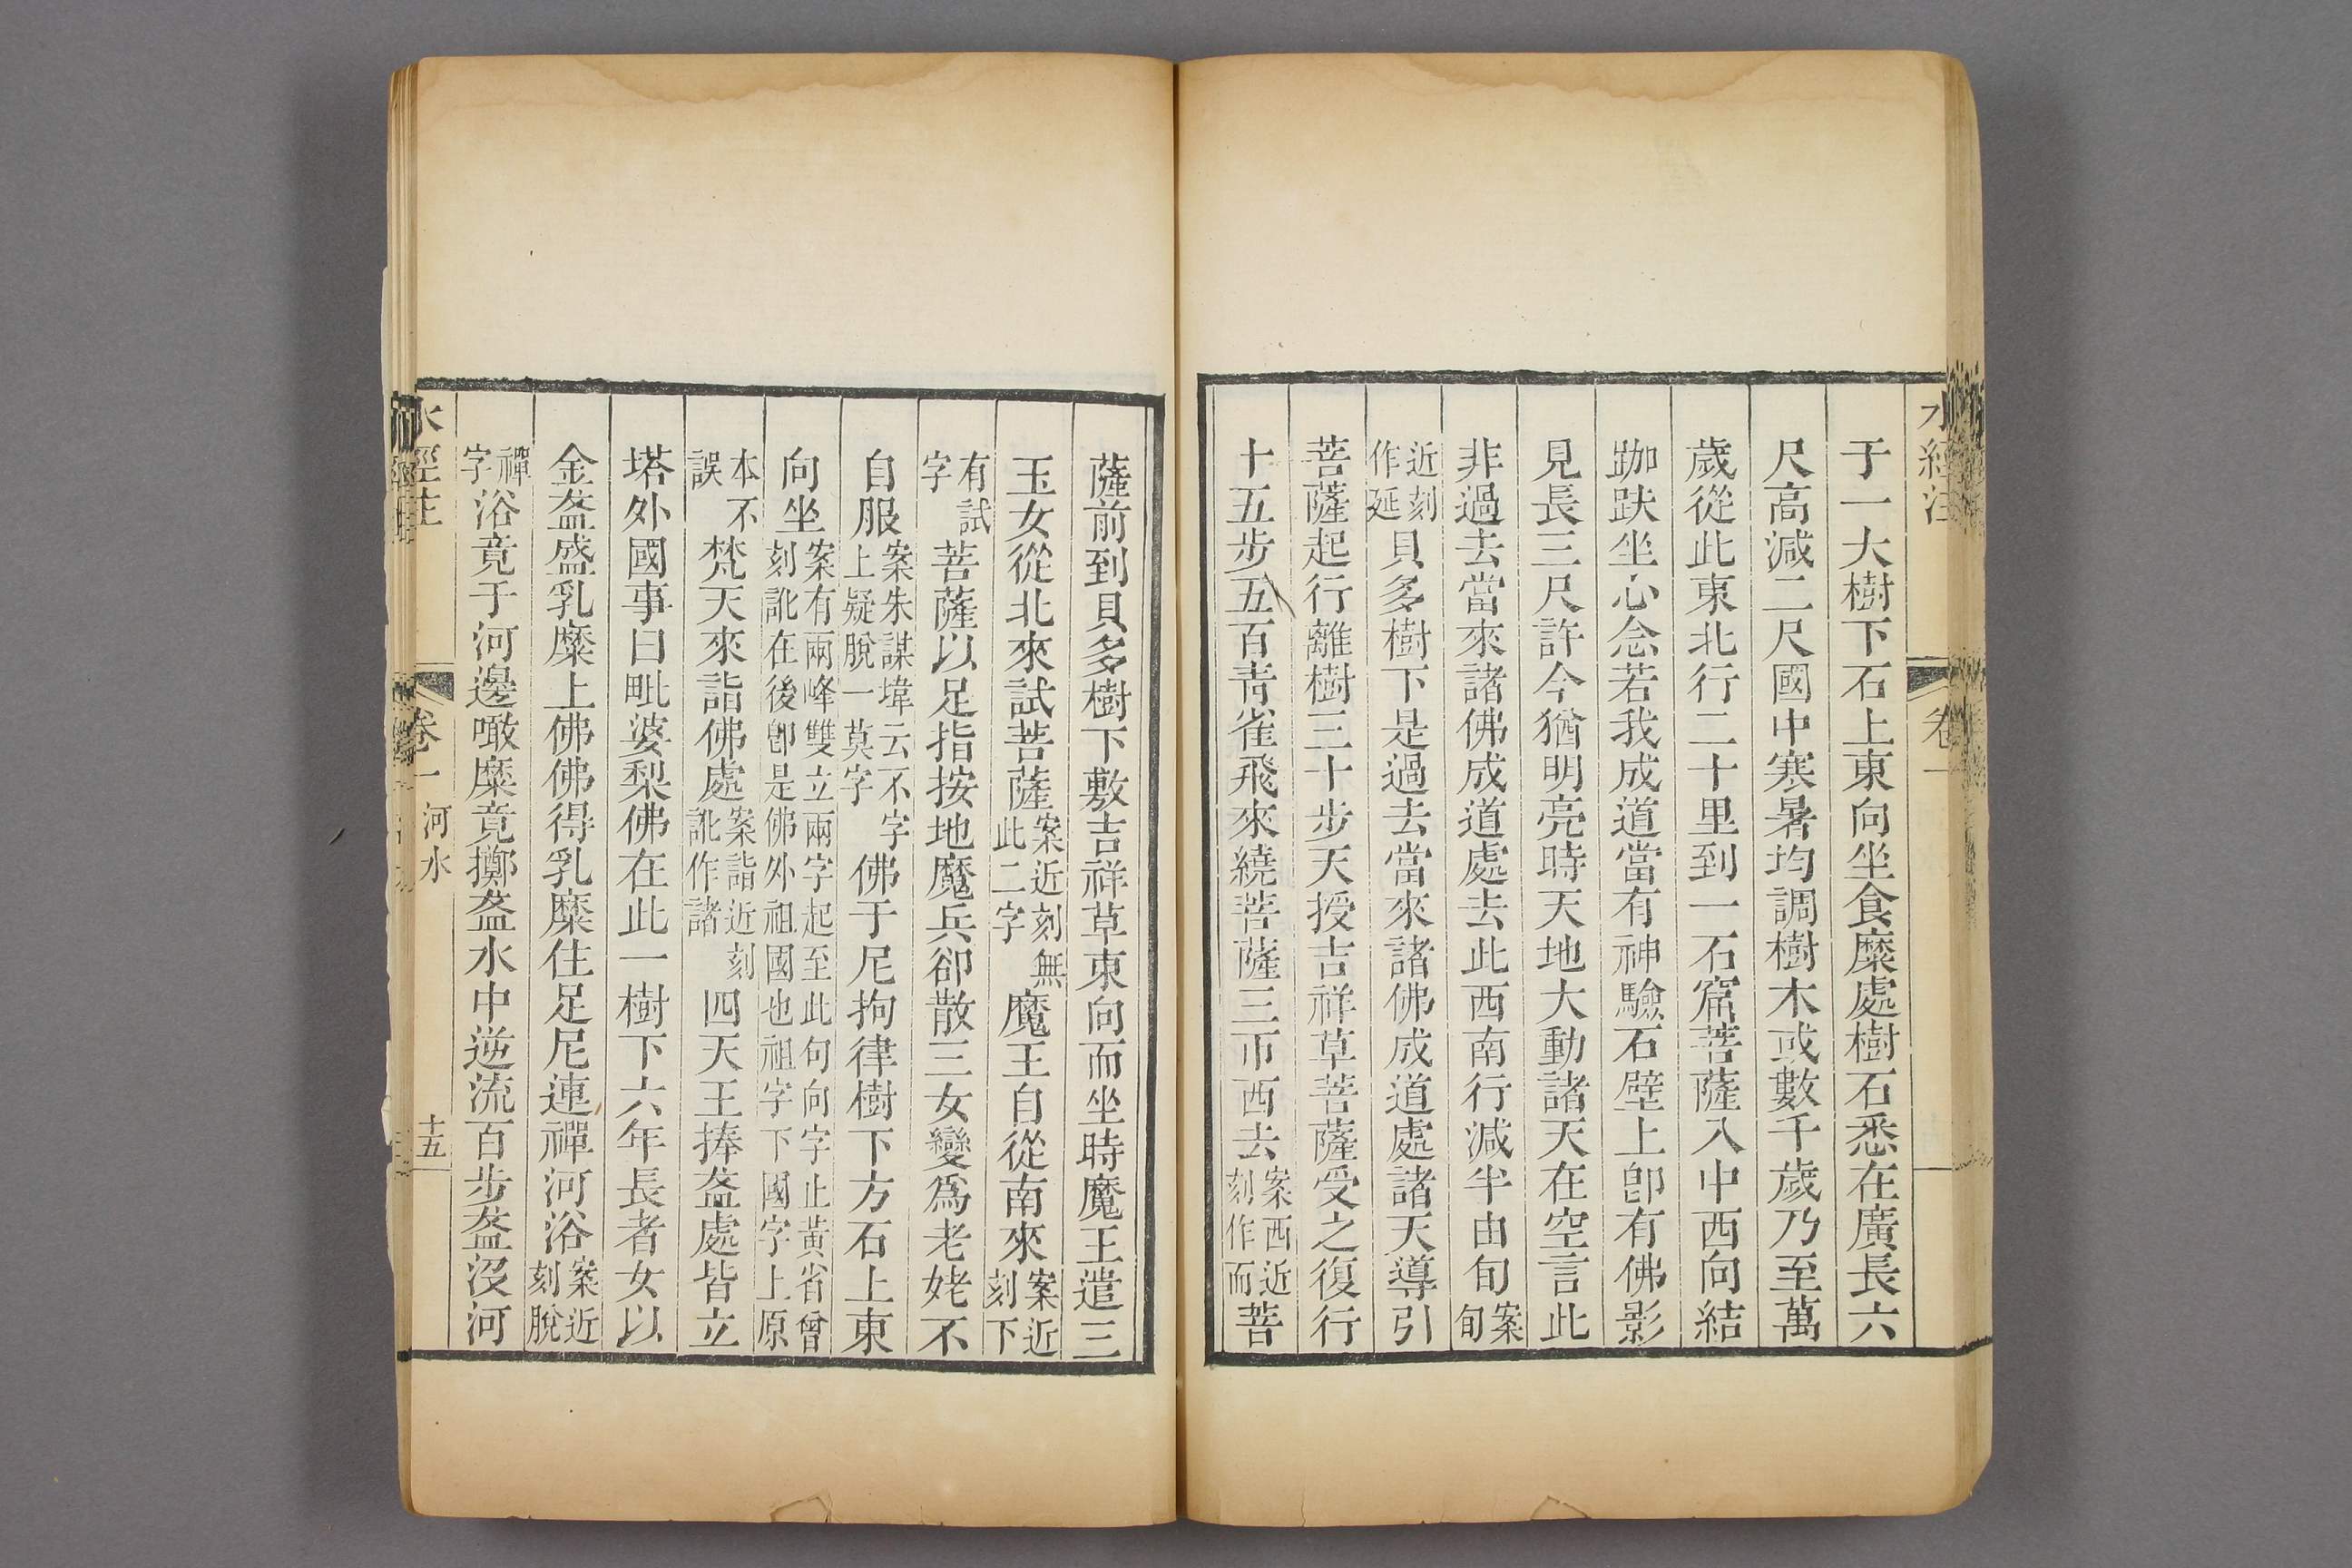 水經注
卷一
于一大樹下石上東向坐食糜處樹石悉在廣長六
尺高減二尺國中寒暑均調樹木或數千歲乃至萬
歲從此東北行二十里到一石窟菩薩入中西向結
跏趺坐心念若我成道當有神驗石壁上卽有佛影
見長三尺許今猶明亮時天地大動諸天在空言此
非過去當來諸佛成道處去此西南行減半由旬案旬
近刻作延貝多樹下是過去當來諸佛成道處諸天導引
菩薩起行離樹三十步天授吉祥草菩薩受之復行
十五步五百青雀飛來繞菩薩三帀西去案西近刻作而菩
薩前到貝多樹下敷吉祥草東向而坐時魔王遣三
玉女從北來試菩薩案近刻無此二字魔王自從南來案近刻下
有試字菩薩以足指按地魔兵卻散三女變爲老姥不
自服案朱謀㙔云不字上疑脫一莫字佛于尼拘律樹下方石上東
向坐案有兩峰雙立兩字起至此句向字止黃省曾刻訛在後卽是佛外祖國也祖字下國字上原
本不誤梵天來詣佛處案詣近刻訛作諸四天王捧盋處皆立
塔外國事曰毗婆梨佛在此一樹下六年長者女以
金盋盛乳糜上佛佛得乳糜住足尼連禪河浴案近刻脫
禪字浴竟于河邊噉糜竟擲盋水中逆流百步盋沒河
水經注
卷一 河水
十五